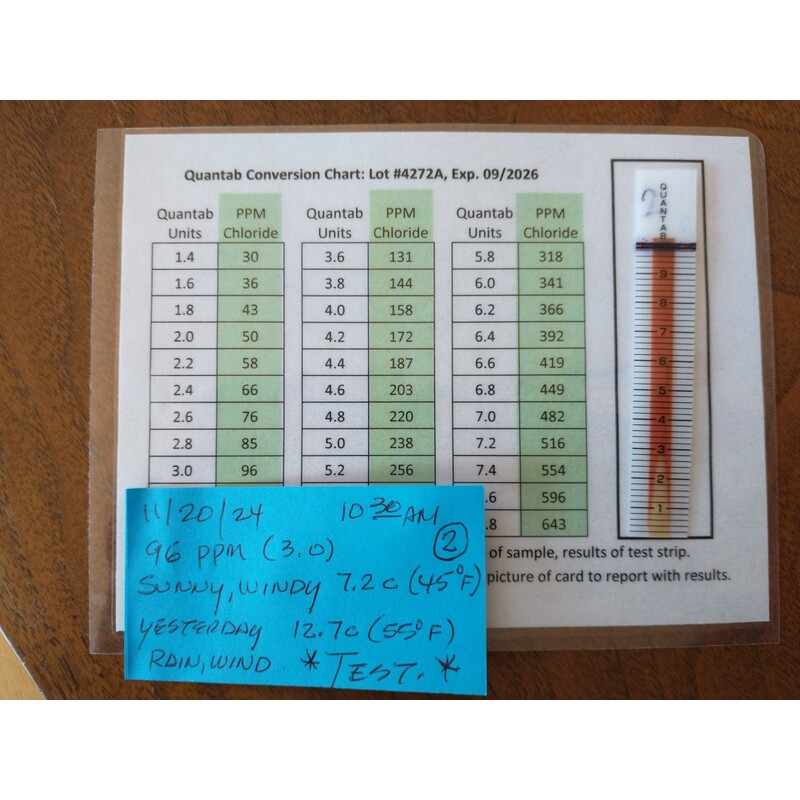 Quantab Conversion Chart: Lot #4272A, Exp. 09/2026
Quantab Units PPM Chloride Quantab Units PPM Chloride Quantab Units PPM Chloride
1.4 30 3.6 131 5.8 318
1.6 36 3.8 144 6.0 341
1.8 43 4.0 158 6.2 366
2.0 50 4.2 172 6.4 392
2.2 58 4.4 187 6.6 419
2.4 66 4.6 203 6.8 449
2.6 76 4.8 220 7.0 482
2.8 85 5.0 238 7.2 516
3.0 96 5.2 256 7.4 554
.6 596
.8 643
of sample, results of test strip.
picture of card to report with results.
2
QUANTAB
9
8
7
6
5
4
3
2
1
11/20/24 10 30 AM
96 PPM (3.0) 2
SUNNY, WINDY 7.2 C (45°F)
YESTERDAY 12.7C (55°F)
RAIN, WIND *TEST.*